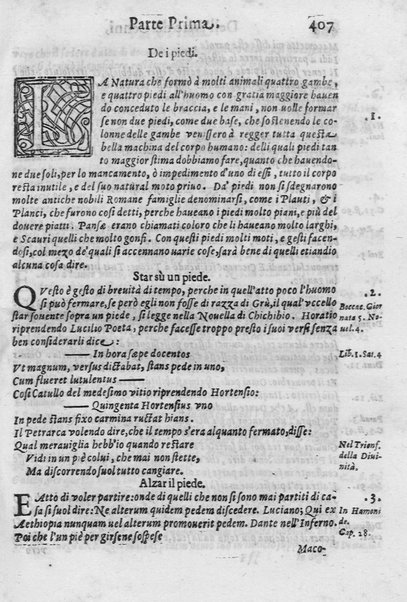 Parte Prima. 407
De i piedi.
LA Natura che formò à molti animali quattro gambe,
e quattro piedi all'huomo con gratia maggiore hauen
do conceduto le braccia, e le mani, non uolle formar
se non due piedi, come due base, che sostenendo le co-
lonne delle gambe venissero à regger tutta questa
bella machina del corpo humano: delli quali piedi tan
to maggior stima dobbiamo fare, quanto che hauendo-
ne due soli, per lo mancamento, ò impedimento d'uno di essi, tutto il corpo
resta inutile, e del suo natural moto priuo. Da' piedi non si sdegnarono
molte antiche nobili Romane famiglie denominarsi, come i Plauti, & i
Planci, che furono cosi detti, perche haueano i piedi molto piani, e più del
douere piatti. Pansæ erano chiamati coloro che li haueano molto larghi,
e Scauri quelli che molto gonfi. Con questi piedi molti moti, e gesti facen-
dosi, col mezo de' quali si accennano uarie cose, sarà bene di quelli etiandio
alcuna cosa dire.
.1.
Star sù un piede.
QVesto è gesto di breuità di tempo, perche in quell'atto poco l'huomo
si può fermare, se però egli non fosse di razza di Grù, il qual vccello
star souente sopra un piede, si legge nella Nouella di Chichibio. Horatio
riprendendo Lucilio Poeta, perche facesse troppo presto i suoi versi senza
ben considerarli dice:
.2.
Boccac. Gior
nata 5. No-
uel. 4.
In hora sæpe docentos
Lib. 1. Sat. 4
Vt magnum, versus dictabat, stans pede in uno,
Cum flueret lutulentus
Cosi Catullo del medesimo vitio riprendendo Hortensio:
Quingenta Hortensius vno
In pede stans fixo carmina ructat hians.
Il Petrarca volendo dire, che il tempo s'era alquanto fermato, disse:
Qual merauiglia hebb'io quando restare
Vidi in un piè colui, che mai non stette,
Ma discorrendo suol tutto cangiare.
Nel Trionf.
della Diui-
nità.
Alzar il piede.
EAtto di voler partire: onde di quelli che non si sono mai partiti di ca-
sa si suol dire: Ne alterum quidem pedem discedere. Luciano; Qui ex
Aethiopia nunquam uel alterum promouerit pedem. Dante nell'Inferno.
Poi che l'un piè per girsene sospese
.3.
In Hamoni
de.
Cap. 28.
Maco-